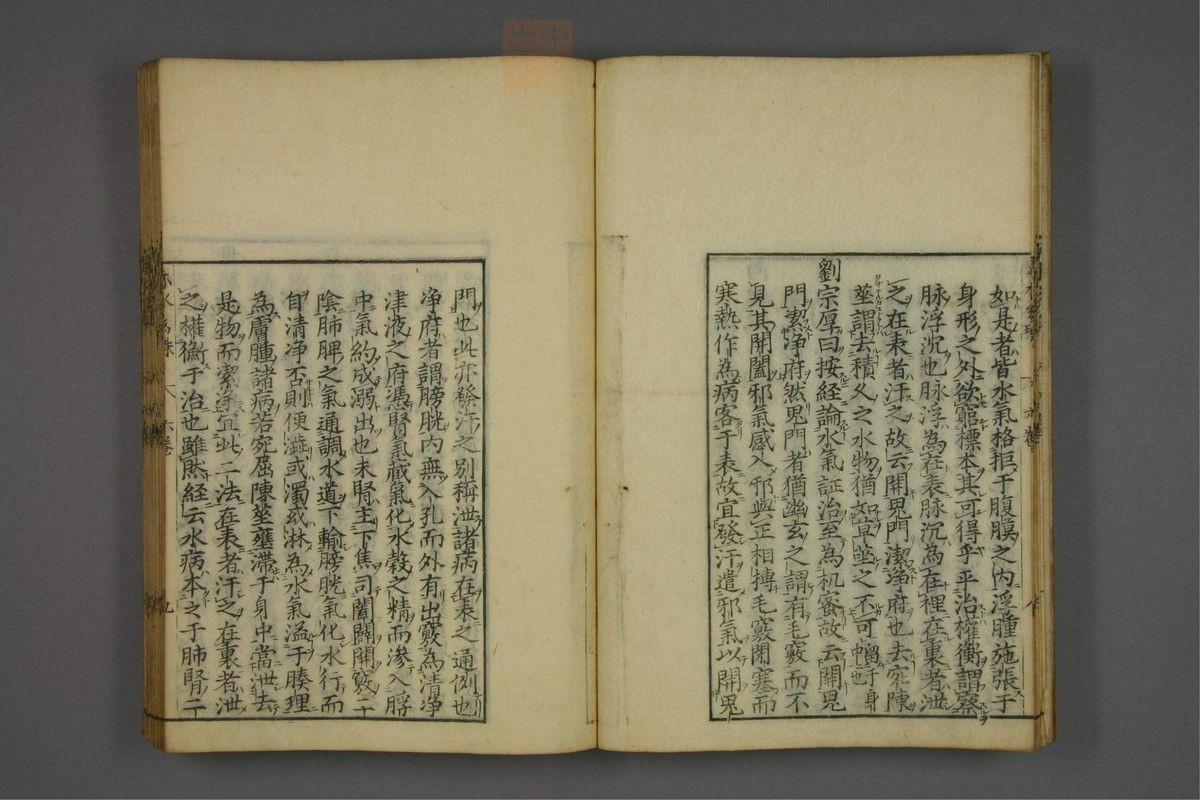 如是者皆水氣格拒于腹膜之内浮腫施張于
身形之外欲窮標本其可得乎平治權衡謂察
脉浮沉也脉浮為在表脉沉為在裡在裏者泄
之在表者汗之故云開鬼門潔浄府也去宛陳
莝謂去積久之水物猶如草莝之不可畱于身也
劉宗厚曰按経論水氣証治至為机密故云開鬼
門潔浄府然鬼門者猶幽玄之謂有毛竅而不
見其開闔邪氣感入邪與正相搏毛竅閉塞而
寒熱作為病客于表故宜發汗遣邪氣以開鬼
門也此亦發汗之別稱泄諸病在表之通例也
浄府者謂膀胱内無入孔而外有出竅為清浄
津液之府馮腎氣藏氣化水穀之精而滲入脬
中氣約成溺出也未腎主下焦司闔闢開竅二
陰肺脾之氣通調水道下輸膀胱氣化水行而
自清浄否則便澁或濁或淋為水氣溢于腠理
為膚腫諸病若宛屈陳莝壅滞于身中當泄去
是物而潔浄宜此二法在表者汗之在裏者泄
之權衡于治也雖然経云水病本之于肺腎二